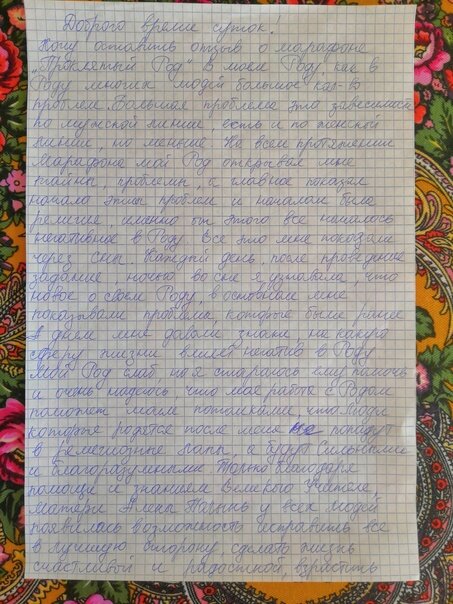 Доброго время суток!
Хочу оставить отзыв о марафоне
"Проклятый Род". В моем Роду, как в
Роду многих людей большое кол-во
проблем. Большая проблема это зависимость
по мужской линие, есть и по женской
линие, но меньше. На всем протяжении
Марафона мой Род открывал мне
тайны, проблемы, а главное показал
начало этих проблем и началом была
религие, именно от этого все началось
негативное в Роду. Все это мне показали
через сны. Каждый день, после проведение
задание ночью во сне я узнавала, что
новое о своем Роду, в основном мне
показывали проблемы, которые были раньше
А днем мне давали знаки, на какую
сферу жизни влияет негатив в Роду
Мой Род слаб, но я стараюсь ему помочь
и очень надеюсь, что моя работа с Родом
поможет моим потомкам, что люди
которые родятся после меня не попадут
в религиозные лапы, а будут Сильными
и Благоразумными. Только благодаря
помощи и знанием Великого Учителя,
Матери Елены у всех людей
появилась возможность исправить все
в лучшую сторону, сделать жизнь
счастливой и радостной, взрастить